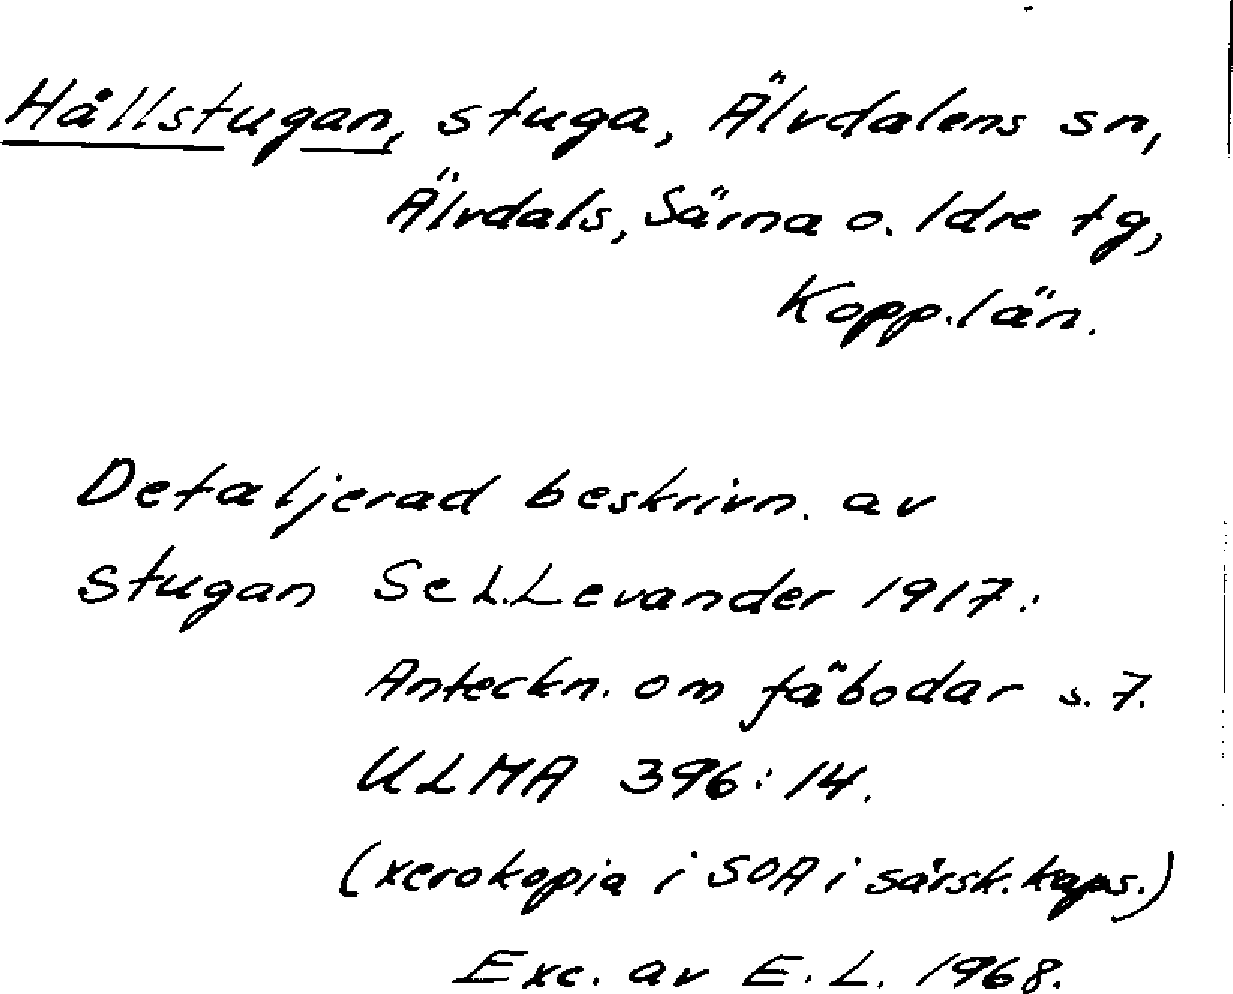 Hållstugan, stuga, Älvdalens sn,
Älvdals, Särna o. Idre tg,
Kopp.län.
Detaljerad beskrivn. av
stugan Se L.Levander 1917:
Anteckn. om fäbodar s. 7.
ULMA 396:14.
(xerokopia i SOA i särsk. kaps.)
Exc. av E. L. 1968.